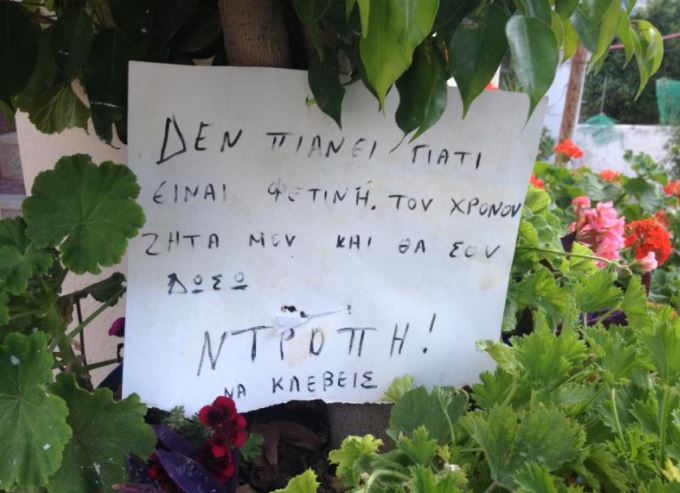 ΔΕΝ ΠΙΑΝΕΙ ΓΙΑΤΙ
ΕΙΝΑΙ ΦΕΤΙΝΗ. ΤΟΥ ΧΡΟΝΟΥ
ΖΗΤΑ ΜΟΥ ΚΑΙ ΘΑ ΣΟΥ
ΔΩΣΩ
ΝΤΡΟΠΗ!
ΝΑ ΚΛΕΒΕΙΣ